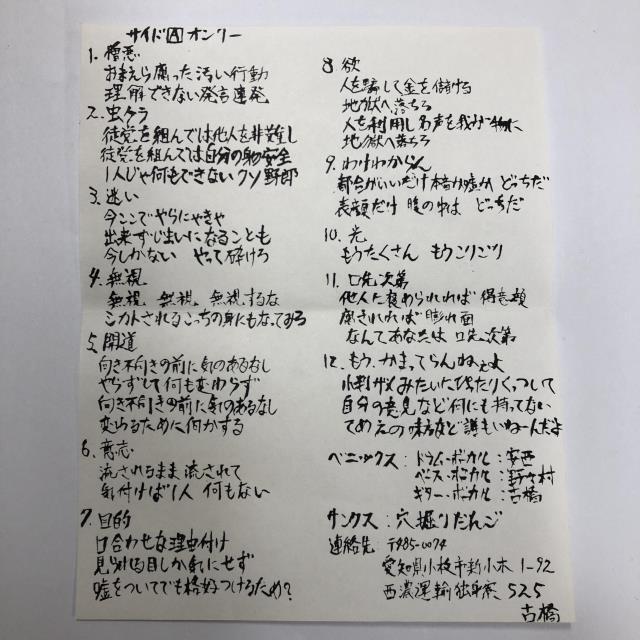 サイドA オンリー
1. 憎悪
おまえら腐った汚い行動
理解できない発言連発
2. 虫ケラ
徒党を組んでは他人を非難し
徒党を組んでは自分の身の安全
1人じゃ何もできないクソ野郎
3. 迷い
今ここでやらにゃきゃ
出来ずじまいになることも
今しかない やって砕けろ
4. 無視
無視 無視。無視するな
シカトされるこっちの身にもなってみろ
5. 開道
向き不向きの前に気のあるなし
やらずして何も変わらず
向き不向きの前に気のあるなし
変わるために何かする
6.
流されるまま流されて
気付けば1人 何もない
7. 目的
口合わせな理由付け
見られる目しか気にせず
嘘をついてでも格好つけるため?
8 欲
人を騙して金を儲ける
地獄へ落ちろ
人を利用し名声を我が物に
地獄へ落ちろ
9. わけわからん
都合がいいだけ 本音か嘘か どっちだ
表顔だけ 腹の中は どっちだ
10. 光
もうたくさん もうこりごり
11. 口先次第
他人に褒められれば 得意顔
されれば膨れ面
なんてあなたは 口先次第
12. もう、かまってらんねぇよ
小判ザメみたいにぴったりくっつして
自分の意見など何にも持ってない
てめえの味方など誰もいねーんだよ
ベニックス:ドラム・ボーカル:安西
ベース・ボーカル:野々村
ギター・ボーカル:古橋
サンクス:穴掘りだんご
連絡先 〒485-0074
愛知県小牧市新小木1-92
西濃運輸独身寮 525
古橋